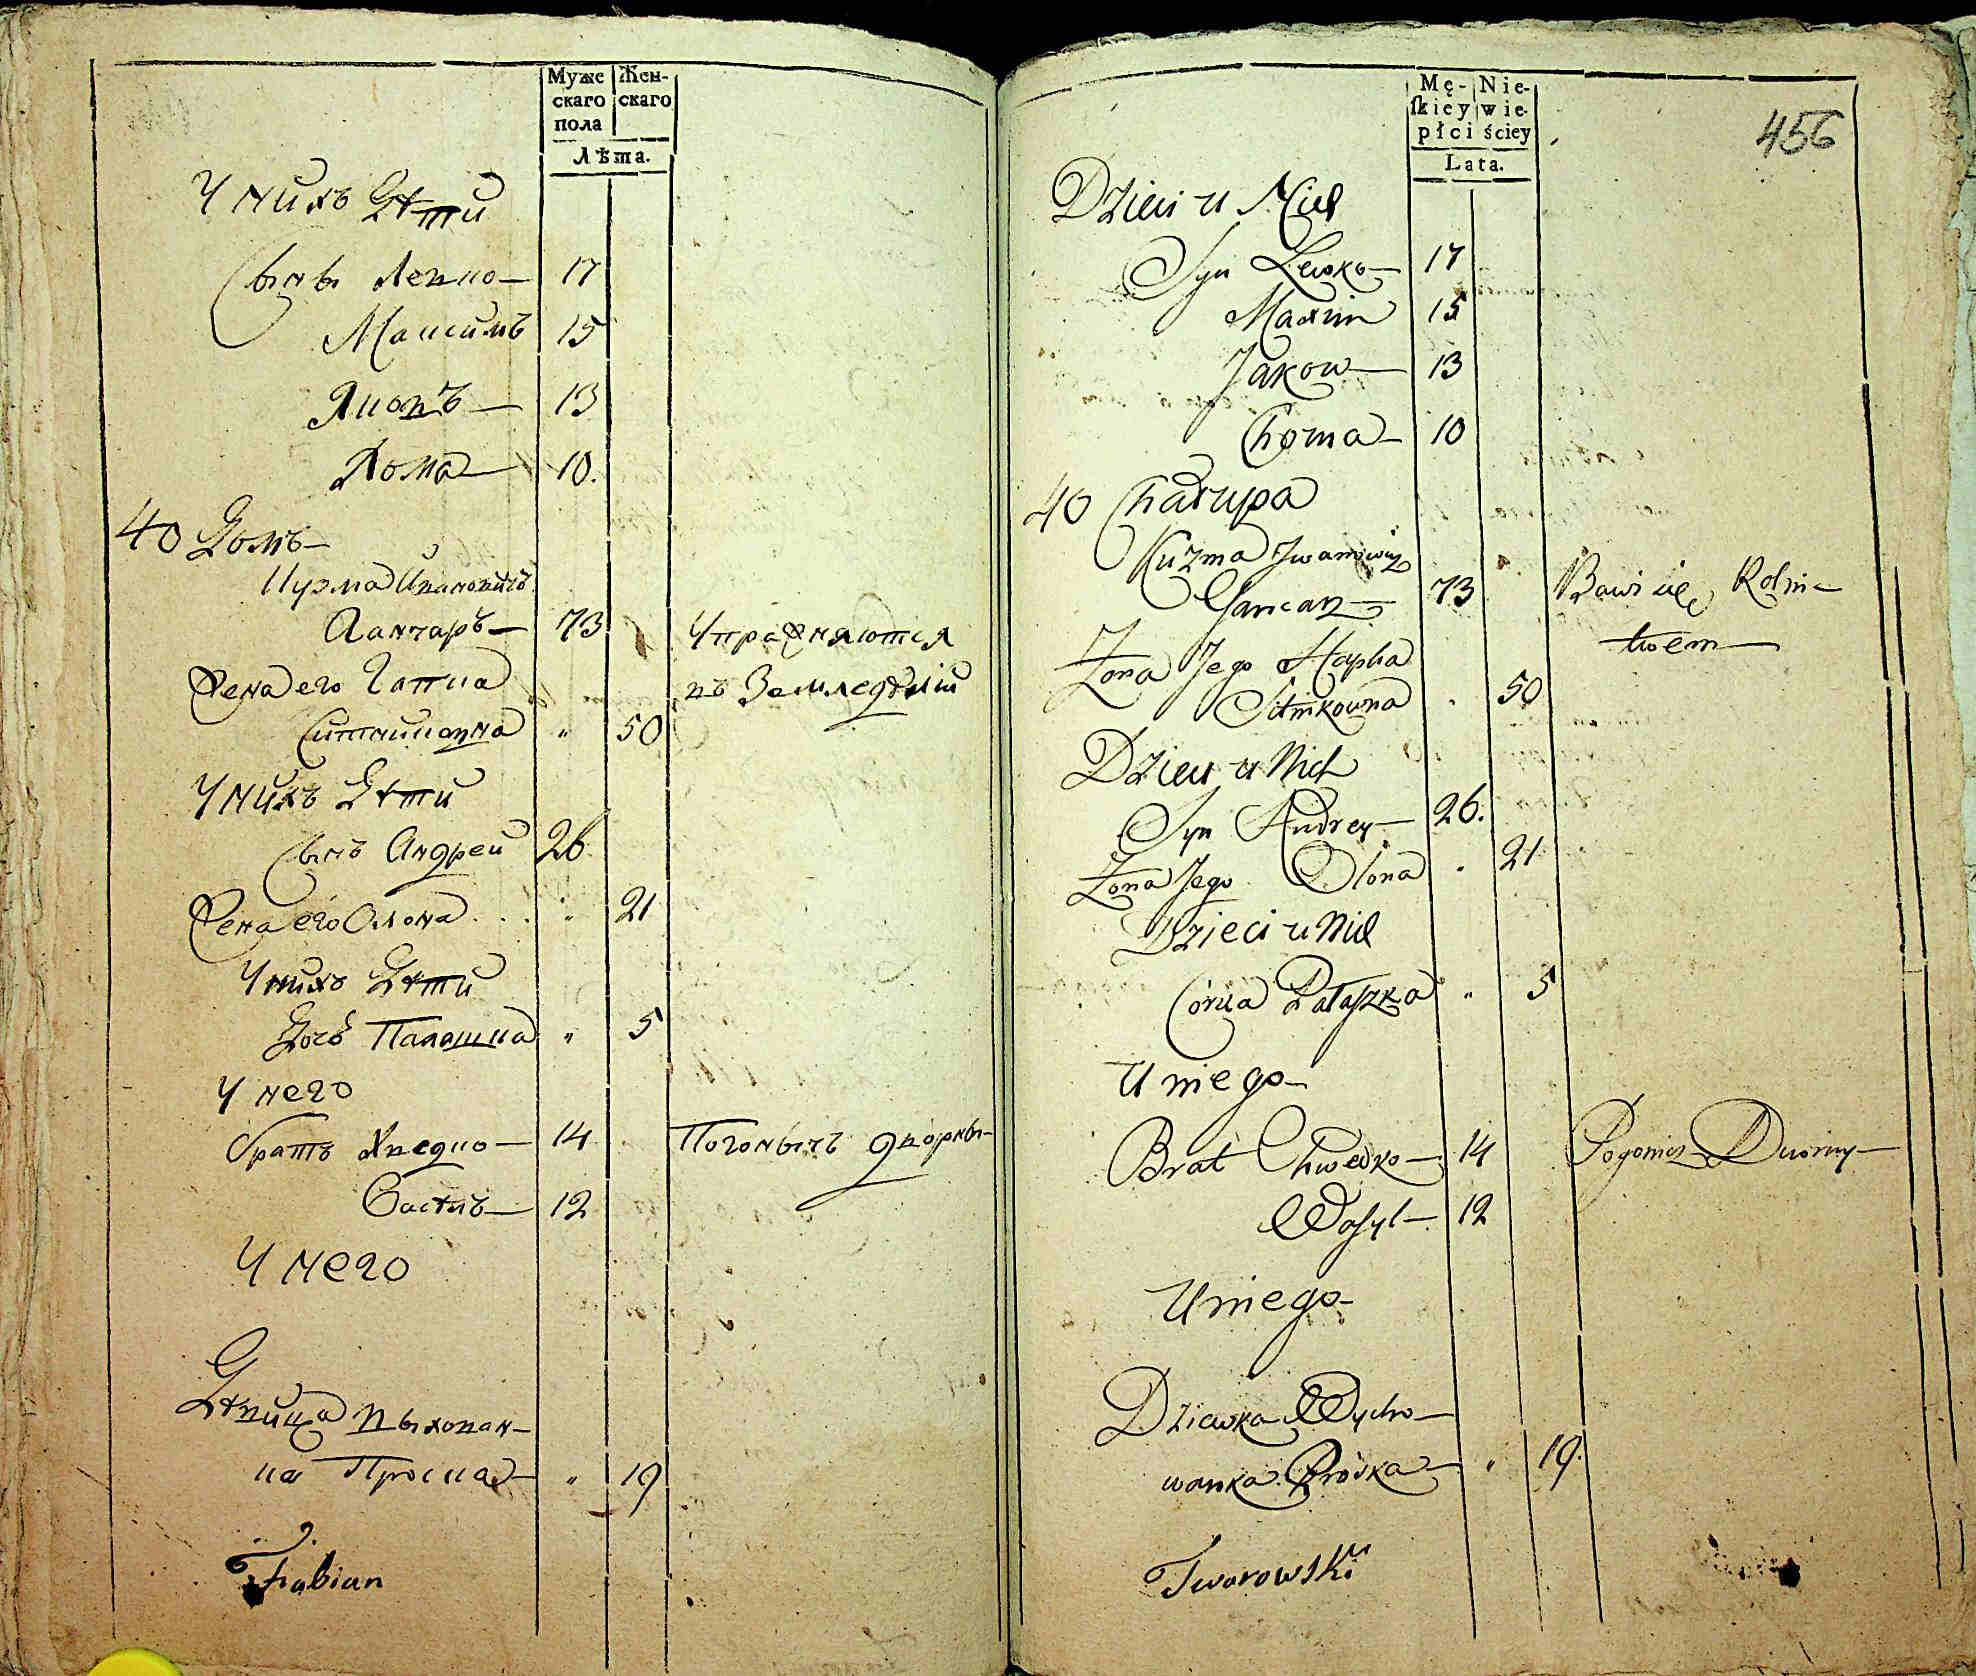 Муже скаго пола
Жен- скаго
Лѣта.
У нихъ Дѣти
Сынъ Левко — 17
Максимъ 15
Яковъ — 13
Хома — 10.
40 Домъ —
Кузма Ивановичъ
Ганчаръ — 73 Упражняются
Жена его Гапка въ Земледѣлій
Ситниковна " 50
У нихъ Дѣти
Сынъ Андрей 26
Жена его Олона " 21
У нихъ Дѣти
Дочь Палашка " 5
У него
братъ Хведко — 14 Погонычъ дворны-
Василь — 12
У него
Дѣвица выхован-
ка Проска — " 19
Fabian
Mę- skiey płci
Nie- wie- ściey
Lata.
456
Dzieci u Nich
Syn Lewko — 17
Maxim 15
Jakow — 13
Choma — 10
40 Chałupa
Kuzma Iwanowicz
Hancarz — 73 Bawi się Rolni-
Żona Jego Hapka ctwem —
Sitnikowna " 50
Dzieci u Nich
Syn Andrey — 26.
Żona Jego Olona " 21
Dzieci u Nich
Córka Pałaszka " 5
U niego —
Brat Chwedko — 14 Pogonicz Dworny —
Wasyl — 12
U niego —
Dziewka Wycho-
wanka Proska — " 19.
Tworowski